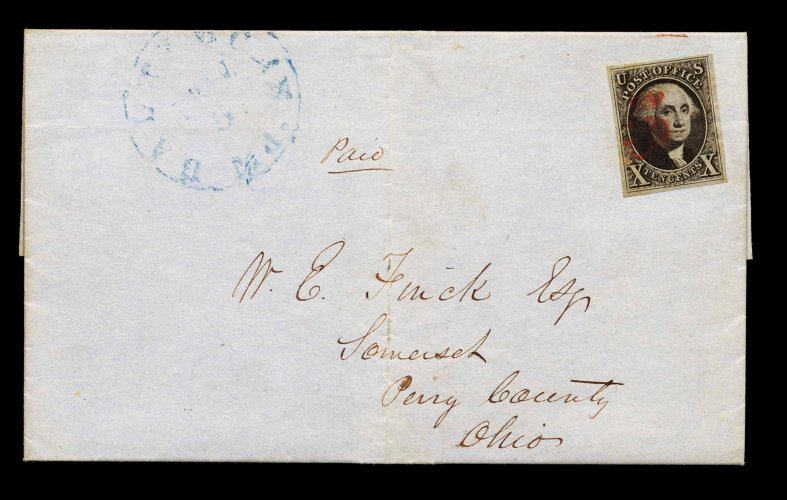 Paid
U S
POST OFFICE
X TEN CENTS X
W. E. Finck Esq
Somerset
Perry County
Ohio